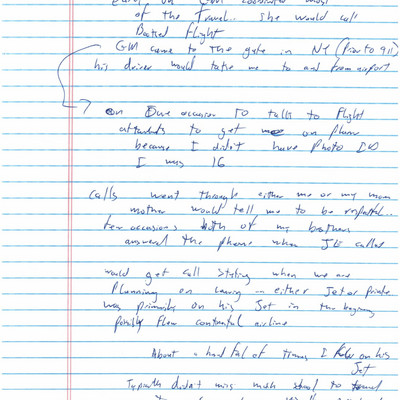 on GM coordinated most
of the Travel.. she would call
Booked Flight
GM came to the gate in NY (Prior to 911)
his driver would take me to and from airport
on One occasion TO talks to Flight
attendants to get me on plane
because I didn't have Photo ID
I was 16
Calls went through either me or my mom
mother would tell me to be respectful..
Few occasions both of my brothers
answered the phone when JE called
would get call stating when we are
Planning on leaving on either Jet or private
was primarily on his Jet in the beginning
possibly flew continental airline
About a handful of times I flew on his
Jet
Typically didn't miss much school to travel